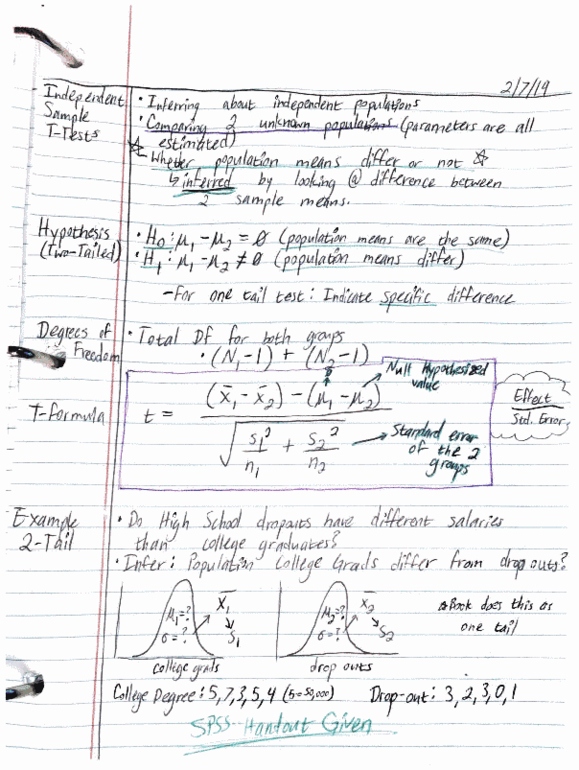 2/7/19
Independent Sample T-Tests
• Inferring about independent populations
• Comparing 2 unknown populations (parameters are all
estimated)
☆ Whether population means differ or not ☆
↳ inferred by looking @ difference between
2 sample means.
Hypothesis (Two-Tailed)
• H₀: μ₁ - μ₂ = 0 (population means are the same)
• H₁: μ₁ - μ₂ ≠ 0 (population means differ)
- For one tail test: Indicate specific difference
Degrees of Freedom
• Total Df for both groups
• (N₁-1) + (N₂-1)
T-formula
t = (x̄₁ - x̄₂) - (μ₁ - μ₂) / √(s₁²/n₁ + s₂²/n₂)
0
Null Hypothesized
value
→ Standard error
of the 2
groups
Effect
Std. Error
Example 2-Tail
• Do High School dropouts have different salaries
than college graduates?
• Infer: Population College Grads differ from drop outs?
μ₁=? σ=? x̄₁ → s₁
college grads
μ₂=? σ=? x̄₂ → s₂
drop outs
☆ Book does this as
one tail
College Degree: 5,7,3,5,4 (5=50,000) Drop-out: 3,2,3,0,1
SPSS-Handout Given